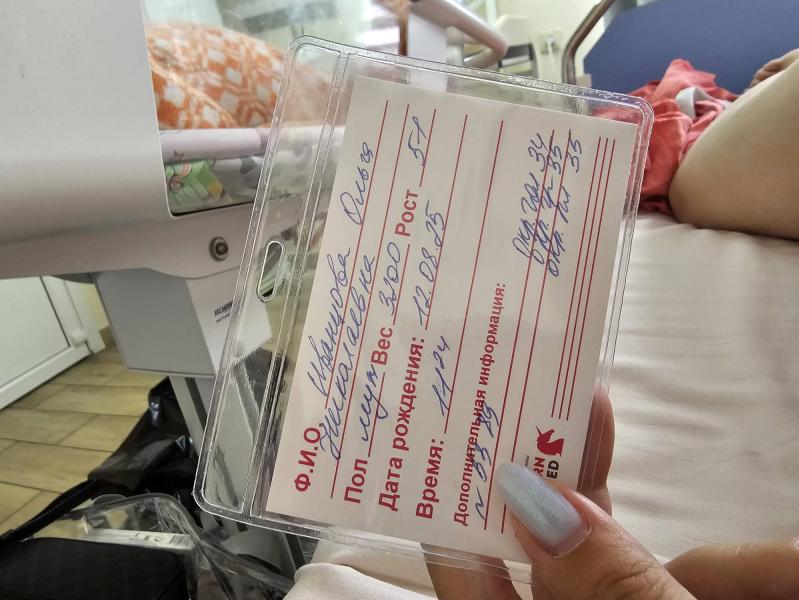 Ф.И.О. Иванцова Ольга
Николаевна
Пол муж Вес 3100 Рост 51
Дата рождения: 12.08.25
Время: 11:04
Дополнительная информация:
№ 5539
окр. гол 34
окр. гр 35
окр. жив 35